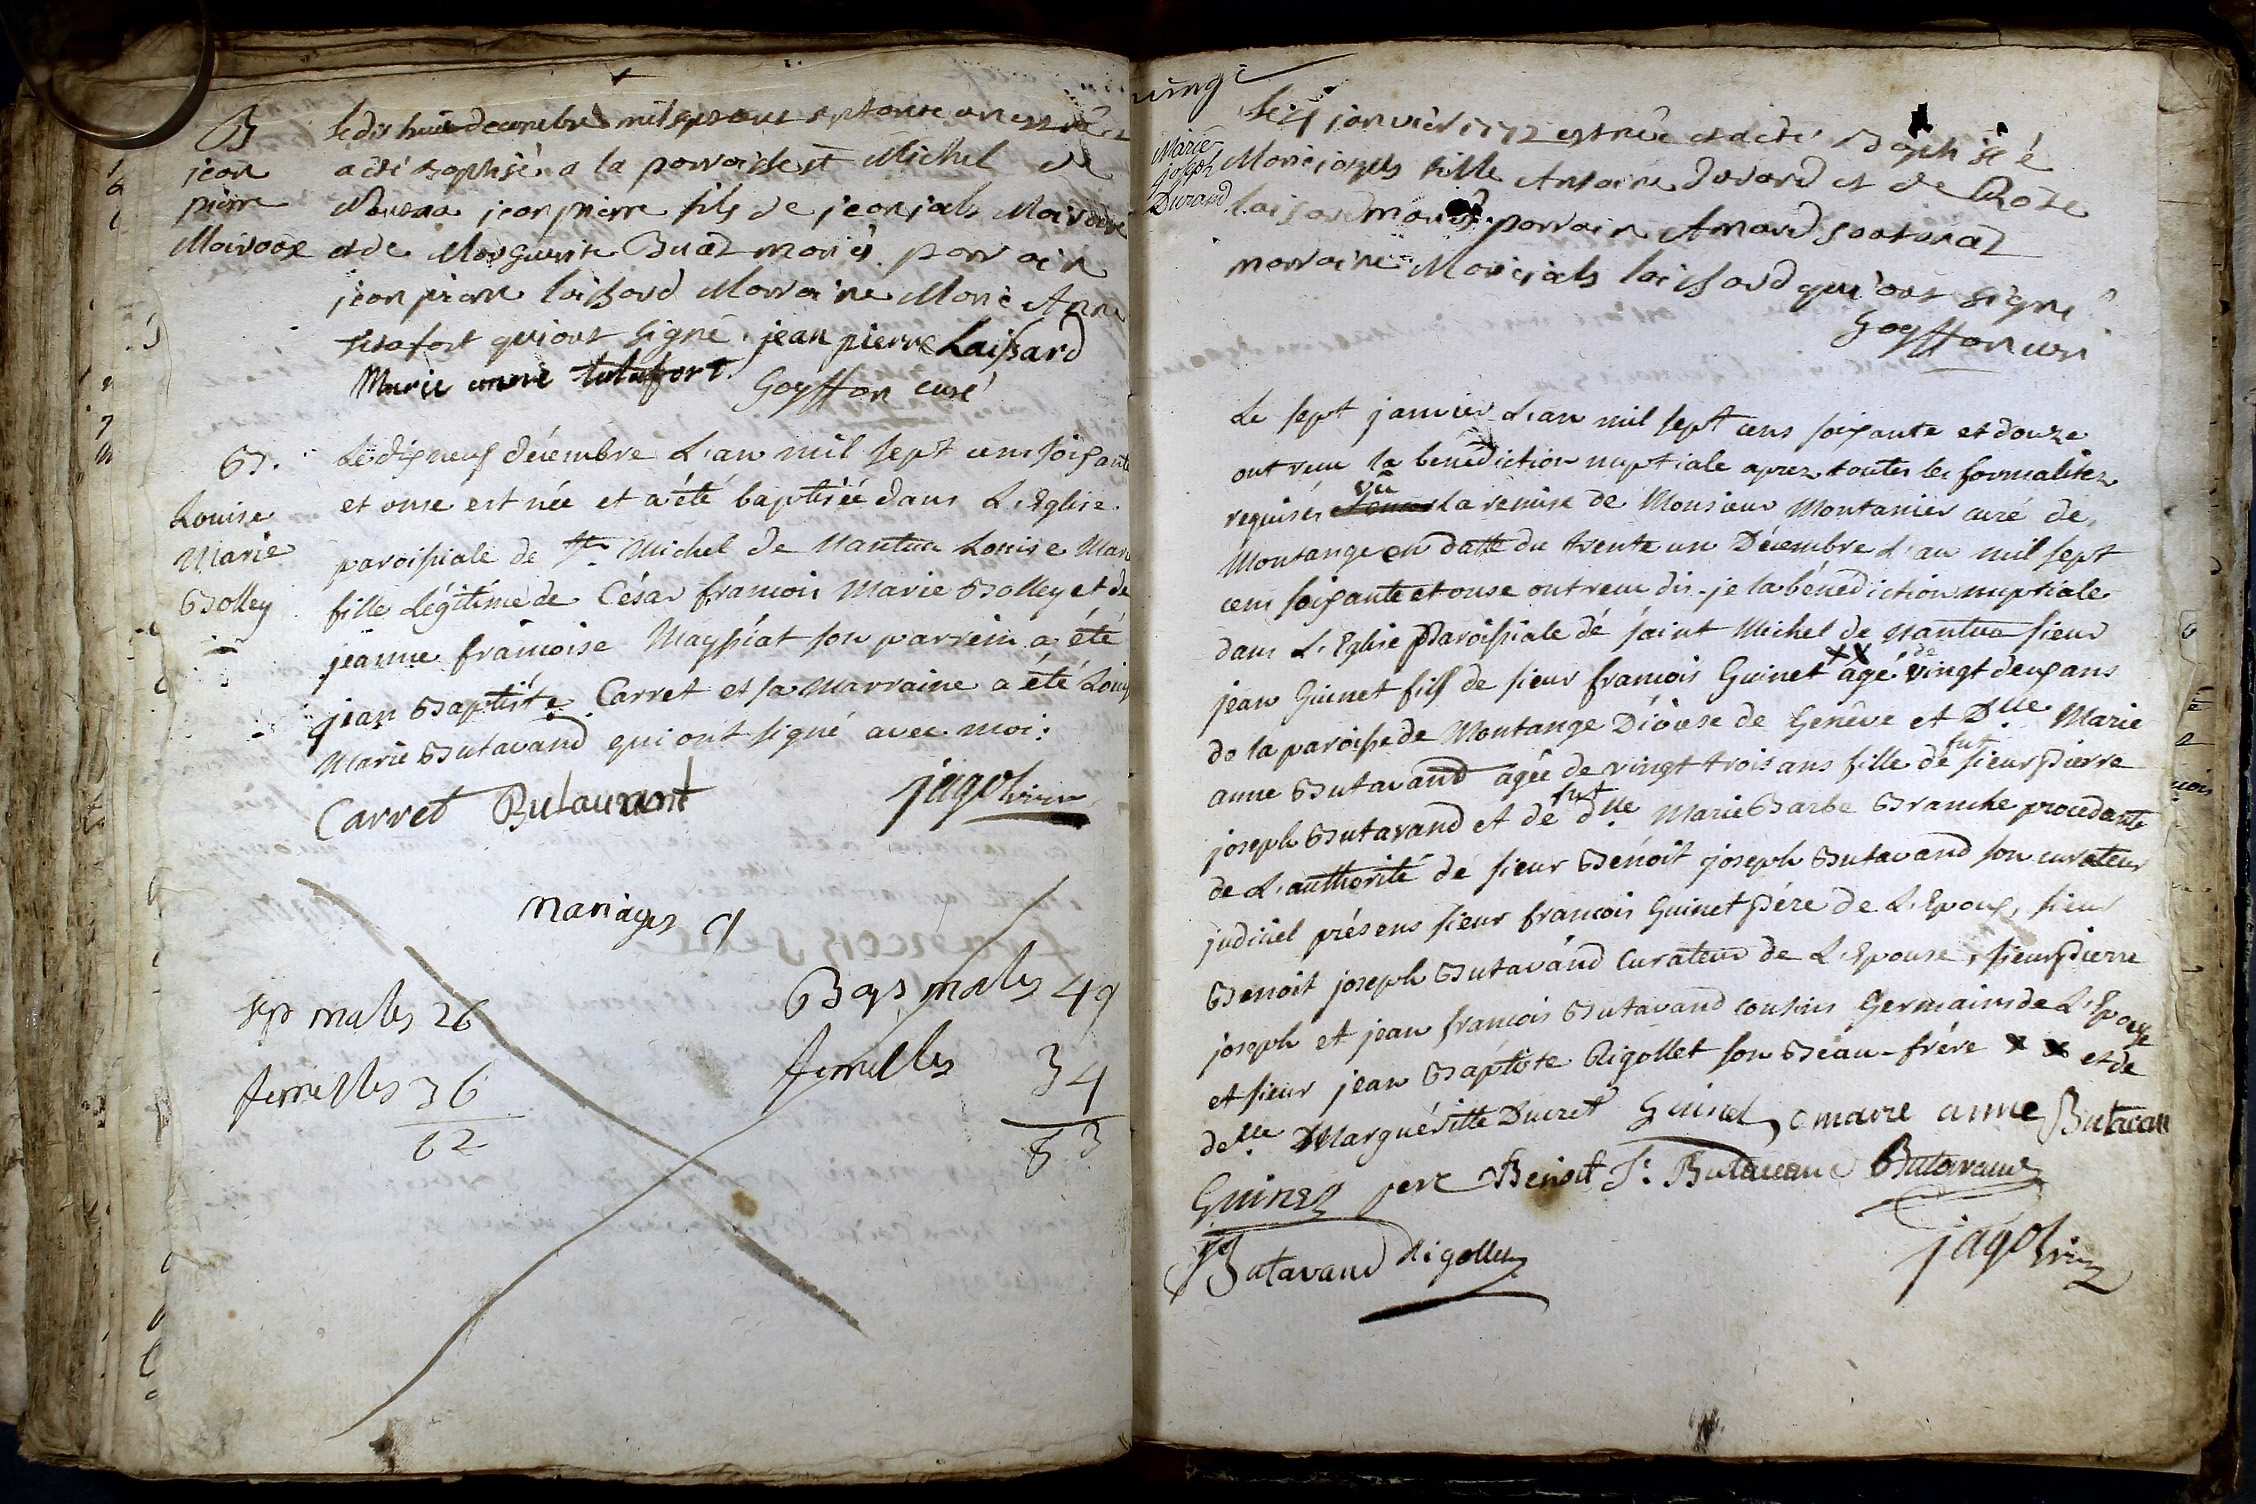 B
jean
pierre
Maivoox
le dis huit decembre mil sept cent septante on est né et
a eté baptisé a la parroisse st Michel de
Nantua jean pierre fils de jean jals
et de Marguerite Buat mariés parrain
jean pierre laissard Marraine Marie Anne
qui ont signé. jean pierre Laissard
Marie anne tutafort. Goyffon curé
B.
Louise
Marie
Bolley
Le dixneuf décembre L'an mil sept cens soixante
et onse est née et a été baptisée dans L'Eglise
paroissiale de St. Michel de Nantua Louise Marie
fille Légitime de César françois Marie Bolley et de
jeanne françoise Mayssiat son parrein a été
jean Baptiste Carret et sa Marraine a été Louise
Marie Butavand qui ont signé avec moi:
Carret Butavant jagot vicaire
Mariages 9
sep males 26
femelles 36
62
Bap males 49
femelles 34
83
Marie
joseph
Durand
le 4 janvier 1772 est née et a eté Baptisée
Marie joseph fille Antoine durard et de Roze
laissard mariés. parrain Amard
marraine Marie jals laissard qui ont signé
Goyffon curé
Le sept janvier L'an mil sept cens soixante et douze
ont reçu la bénédiction nuptiale apres toutes les formalités
requises vû la remise de Monsieur Montanier curé de
Montange en datte du trente un Décembre L'an mil sept
cens soixante et onse ont reçu dis-je la bénédiction nuptiale
dans L'Eglise Paroissiale de saint Michel de Nantua sieur
jean Guinet fils de sieur françois Guinet xx agé de vingt deux ans
de la paroisse de Montange Diocese de Genêve et Dlle. Marie
anne Butavand agée de vingt trois ans fille de fut sieur Pierre
joseph Butavand et de fut dlle Marie Barbe Branche procedante
de L'authorité de sieur Benoit joseph Butavand son curateur
judiciel présens sieur françois Guinet Pére de L'Epoux, sieur
Benoit joseph Butavand Curateur de L'Epouse, sieur Pierre
joseph et jean françois Butavand cousins Germains de L'Epouse
et sieur jean Baptiste Rigollet son Beau-frére x x et de
delle. Marguéritte Ducret Guinet marie anne Butavan
Guinet pere Benoit Jh. Butavand Butavand
Butavand Rigollet jagot vic